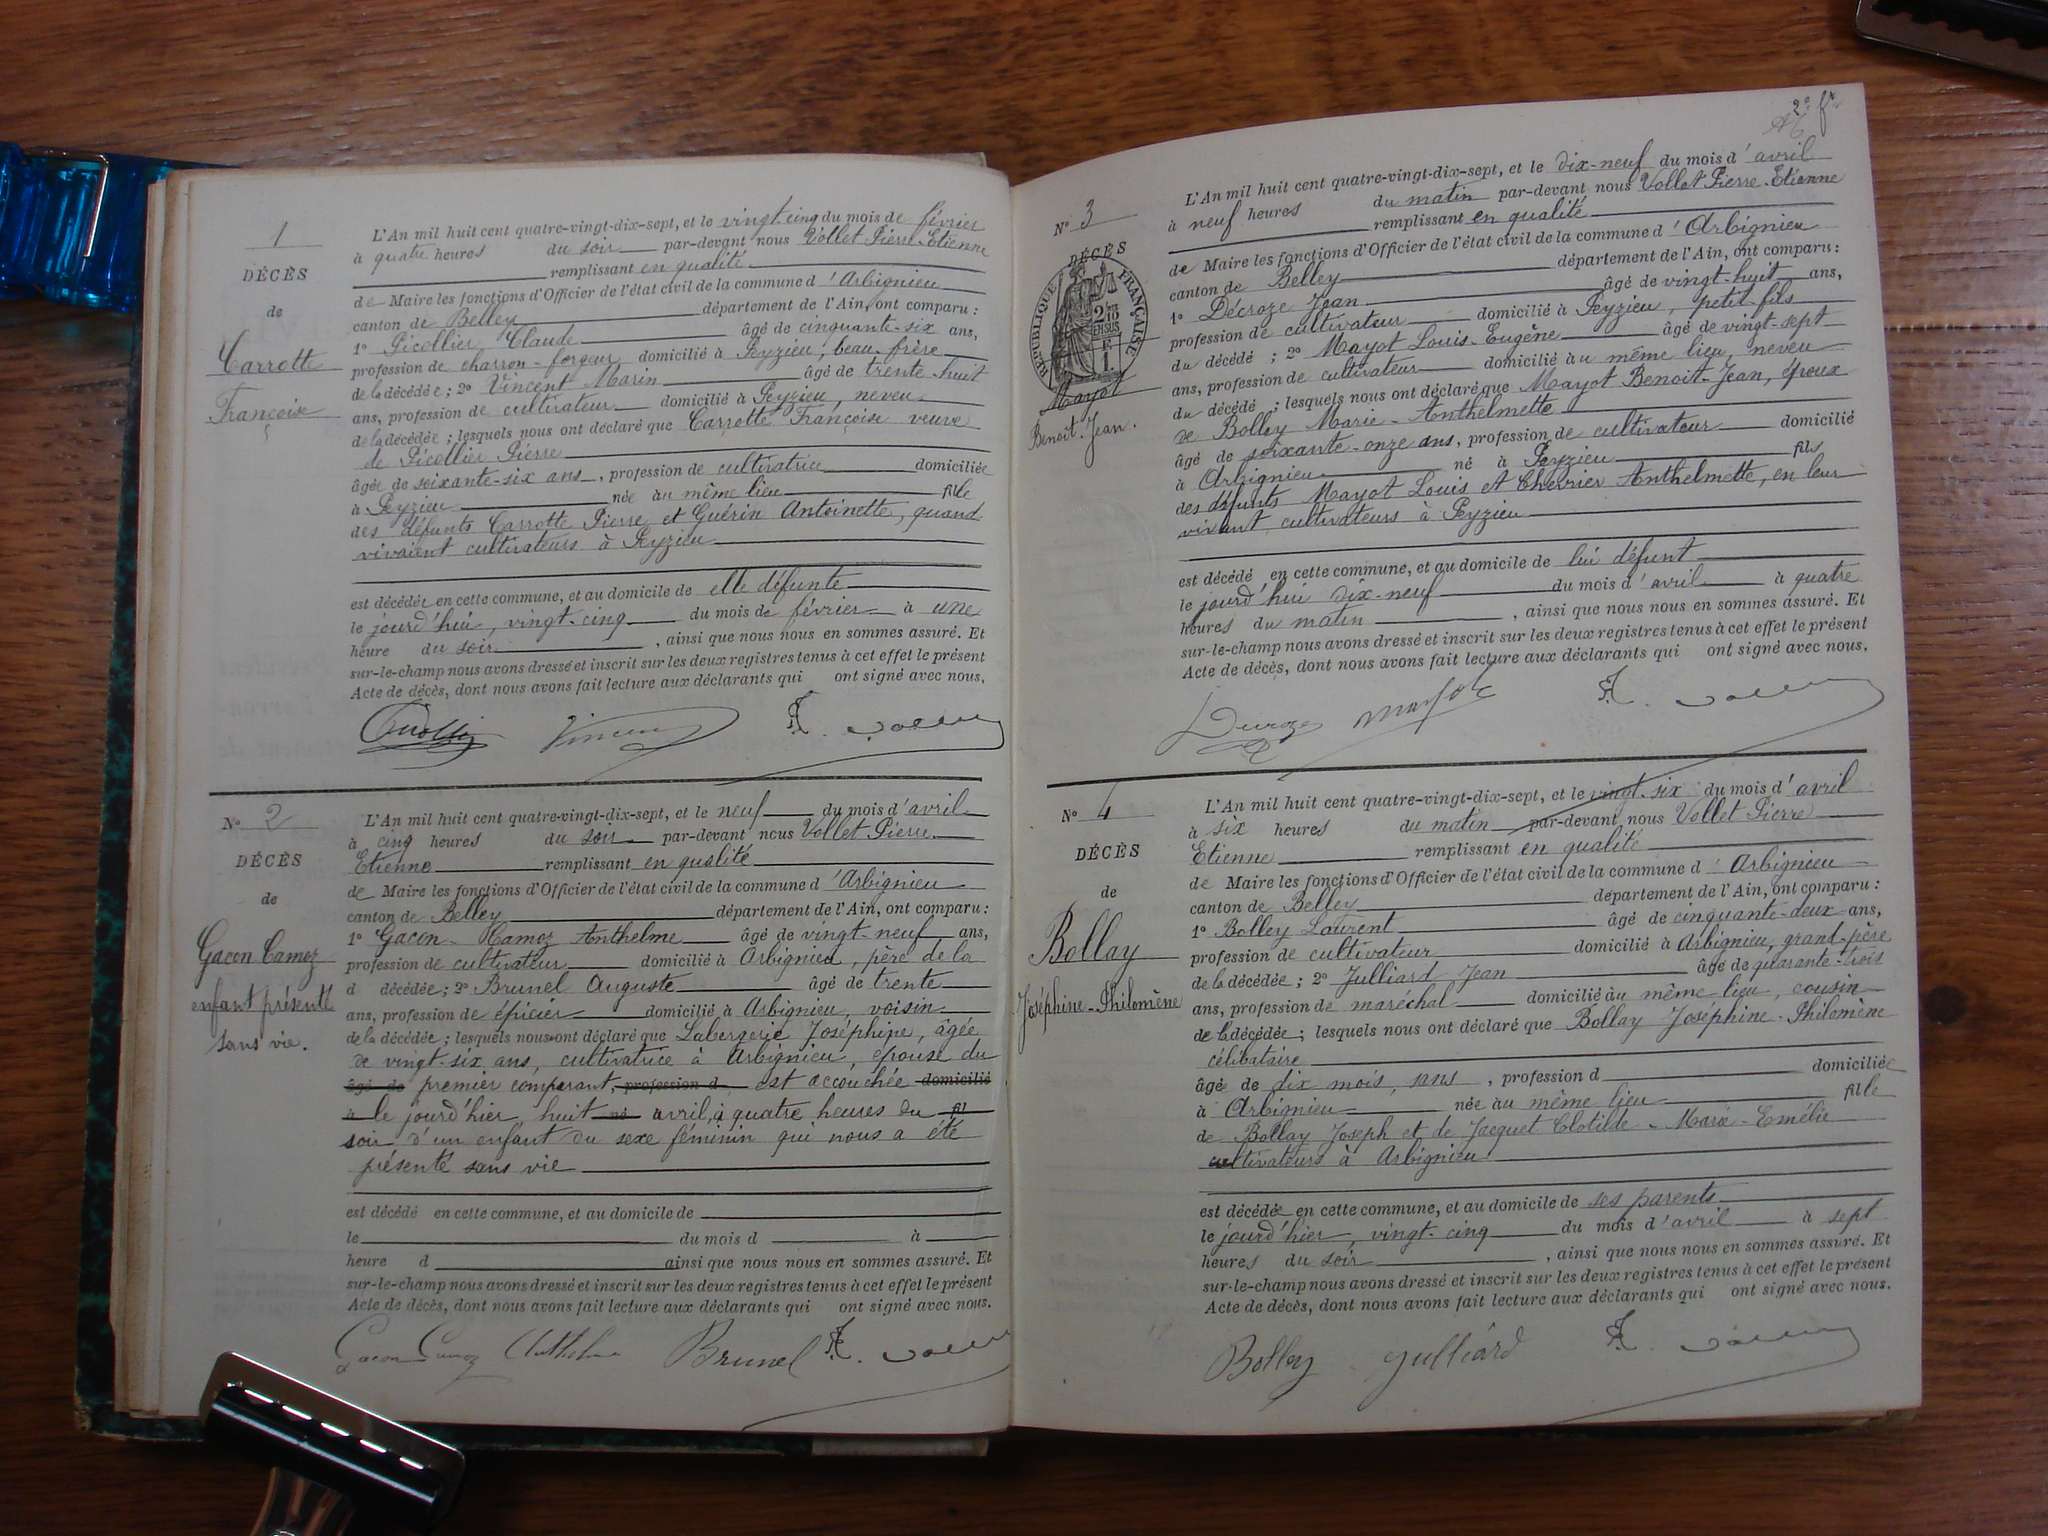 1
DÉCÈS
de
Carrotte
Françoise
L'An mil huit cent quatre-vingt-dix-sept, et le vingt-cinq du mois de février
à quatre heures du soir par-devant nous Vollet Pierre-Etienne
remplissant en qualité
de Maire les fonctions d'Officier de l'état civil de la commune d'Arbignieu
canton de Belley département de l'Ain, ont comparu :
1° Picollier Claude âgé de cinquante-six ans,
profession de charron-forgeur domicilié à Peyzieu, beau-frère
de la décédée ; 2° Vincent Marin âgé de trente-huit
ans, profession de cultivateur domicilié à Peyzieu, neveu
de la décédée ; lesquels nous ont déclaré que Carrotte Françoise veuve
de Picollier Pierre
âgée de soixante-six ans, profession de cultivatrice domiciliée
à Peyzieu née au même lieu fille
des défunts Carrotte Pierre et Guérin Antoinette, quand
vivaient cultivateurs à Peyzieu
est décédée en cette commune, et au domicile de elle défunte
le jourd'hui, vingt-cinq du mois de février à une
heure du soir, ainsi que nous nous en sommes assuré. Et
sur-le-champ nous avons dressé et inscrit sur les deux registres tenus à cet effet le présent
Acte de décès, dont nous avons fait lecture aux déclarants qui ont signé avec nous.
Vincent
N° 2
DÉCÈS
de
Gacon-Camoz
enfant présenté
sans vie.
L'An mil huit cent quatre-vingt-dix-sept, et le neuf du mois d'avril
à cinq heures du soir par-devant nous Vollet Pierre
Etienne remplissant en qualité
de Maire les fonctions d'Officier de l'état civil de la commune d'Arbignieu
canton de Belley département de l'Ain, ont comparu :
1° Gacon-Camoz Anthelme âgé de vingt-neuf ans,
profession de cultivateur domicilié à Arbignieu, père de la
d décédée ; 2° Brunel Auguste âgé de trente
ans, profession de épicier domicilié à Arbignieu, voisin
de la décédée ; lesquels nous ont déclaré que Labergerie Joséphine, âgée
de vingt-six ans, cultivatrice à Arbignieu, épouse du
âgé de premier comparant, profession d est accouchée domicilié
à le jourd'hier, huit né avril, à quatre heures du fil
soir d'un enfant du sexe féminin qui nous a été
présenté sans vie
est décédé en cette commune, et au domicile de
le du mois d à
heure d ainsi que nous nous en sommes assuré. Et
sur-le-champ nous avons dressé et inscrit sur les deux registres tenus à cet effet le présent
Acte de décès, dont nous avons fait lecture aux déclarants qui ont signé avec nous.
Gacon Camoz Anthelme Brunel
2e ft
N° 3
DÉCÈS
RÉPUBLIQUE FRANÇAISE
Mayot
Benoit-Jean.
L'An mil huit cent quatre-vingt-dix-sept, et le dix-neuf du mois d'avril
à neuf heures du matin par-devant nous Vollet Pierre-Etienne
remplissant en qualité
de Maire les fonctions d'Officier de l'état civil de la commune d'Arbignieu
canton de Belley département de l'Ain, ont comparu :
1° Décroze Jean âgé de vingt-huit ans,
profession de cultivateur domicilié à Peyzieu, petit-fils
du décédé ; 2° Mayot Louis-Eugène âgé de vingt-sept
ans, profession de cultivateur domicilié au même lieu, neveu
du décédé ; lesquels nous ont déclaré que Mayot Benoit-Jean, époux
de Bolley Marie-Anthelmette
âgé de soixante-onze ans, profession de cultivateur domicilié
à Arbignieu né à Peyzieu fils
des défunts Mayot Louis et Chevrier Anthelmette, en leur
vivant cultivateurs à Peyzieu
est décédé en cette commune, et au domicile de lui défunt
le jourd'hui dix-neuf du mois d'avril à quatre
heures du matin, ainsi que nous nous en sommes assuré. Et
sur-le-champ nous avons dressé et inscrit sur les deux registres tenus à cet effet le présent
Acte de décès, dont nous avons fait lecture aux déclarants qui ont signé avec nous.
Mayot
N° 4
DÉCÈS
de
Bollay
Joséphine-Philomène
L'An mil huit cent quatre-vingt-dix-sept, et le vingt-six du mois d'avril
à six heures du matin par-devant nous Vollet Pierre
Etienne remplissant en qualité
de Maire les fonctions d'Officier de l'état civil de la commune d'Arbignieu
canton de Belley département de l'Ain, ont comparu :
1° Bolley Laurent âgé de cinquante-deux ans,
profession de cultivateur domicilié à Arbignieu, grand-père
de la décédée ; 2° Julliard Jean âgé de quarante-trois
ans, profession de maréchal domicilié au même lieu, cousin
de la décédée ; lesquels nous ont déclaré que Bollay Joséphine-Philomène
célibataire
âgée de dix mois, sans, profession d domiciliée
à Arbignieu née au même lieu fille
de Bollay Joseph et de Jacquet Clotilde-Marie-Emélie
cultivateurs à Arbignieu
est décédée en cette commune, et au domicile de ses parents
le jourd'hier, vingt-cinq du mois d'avril à sept
heures du soir, ainsi que nous nous en sommes assuré. Et
sur-le-champ nous avons dressé et inscrit sur les deux registres tenus à cet effet le présent
Acte de décès, dont nous avons fait lecture aux déclarants qui ont signé avec nous.
Bolley Julliard